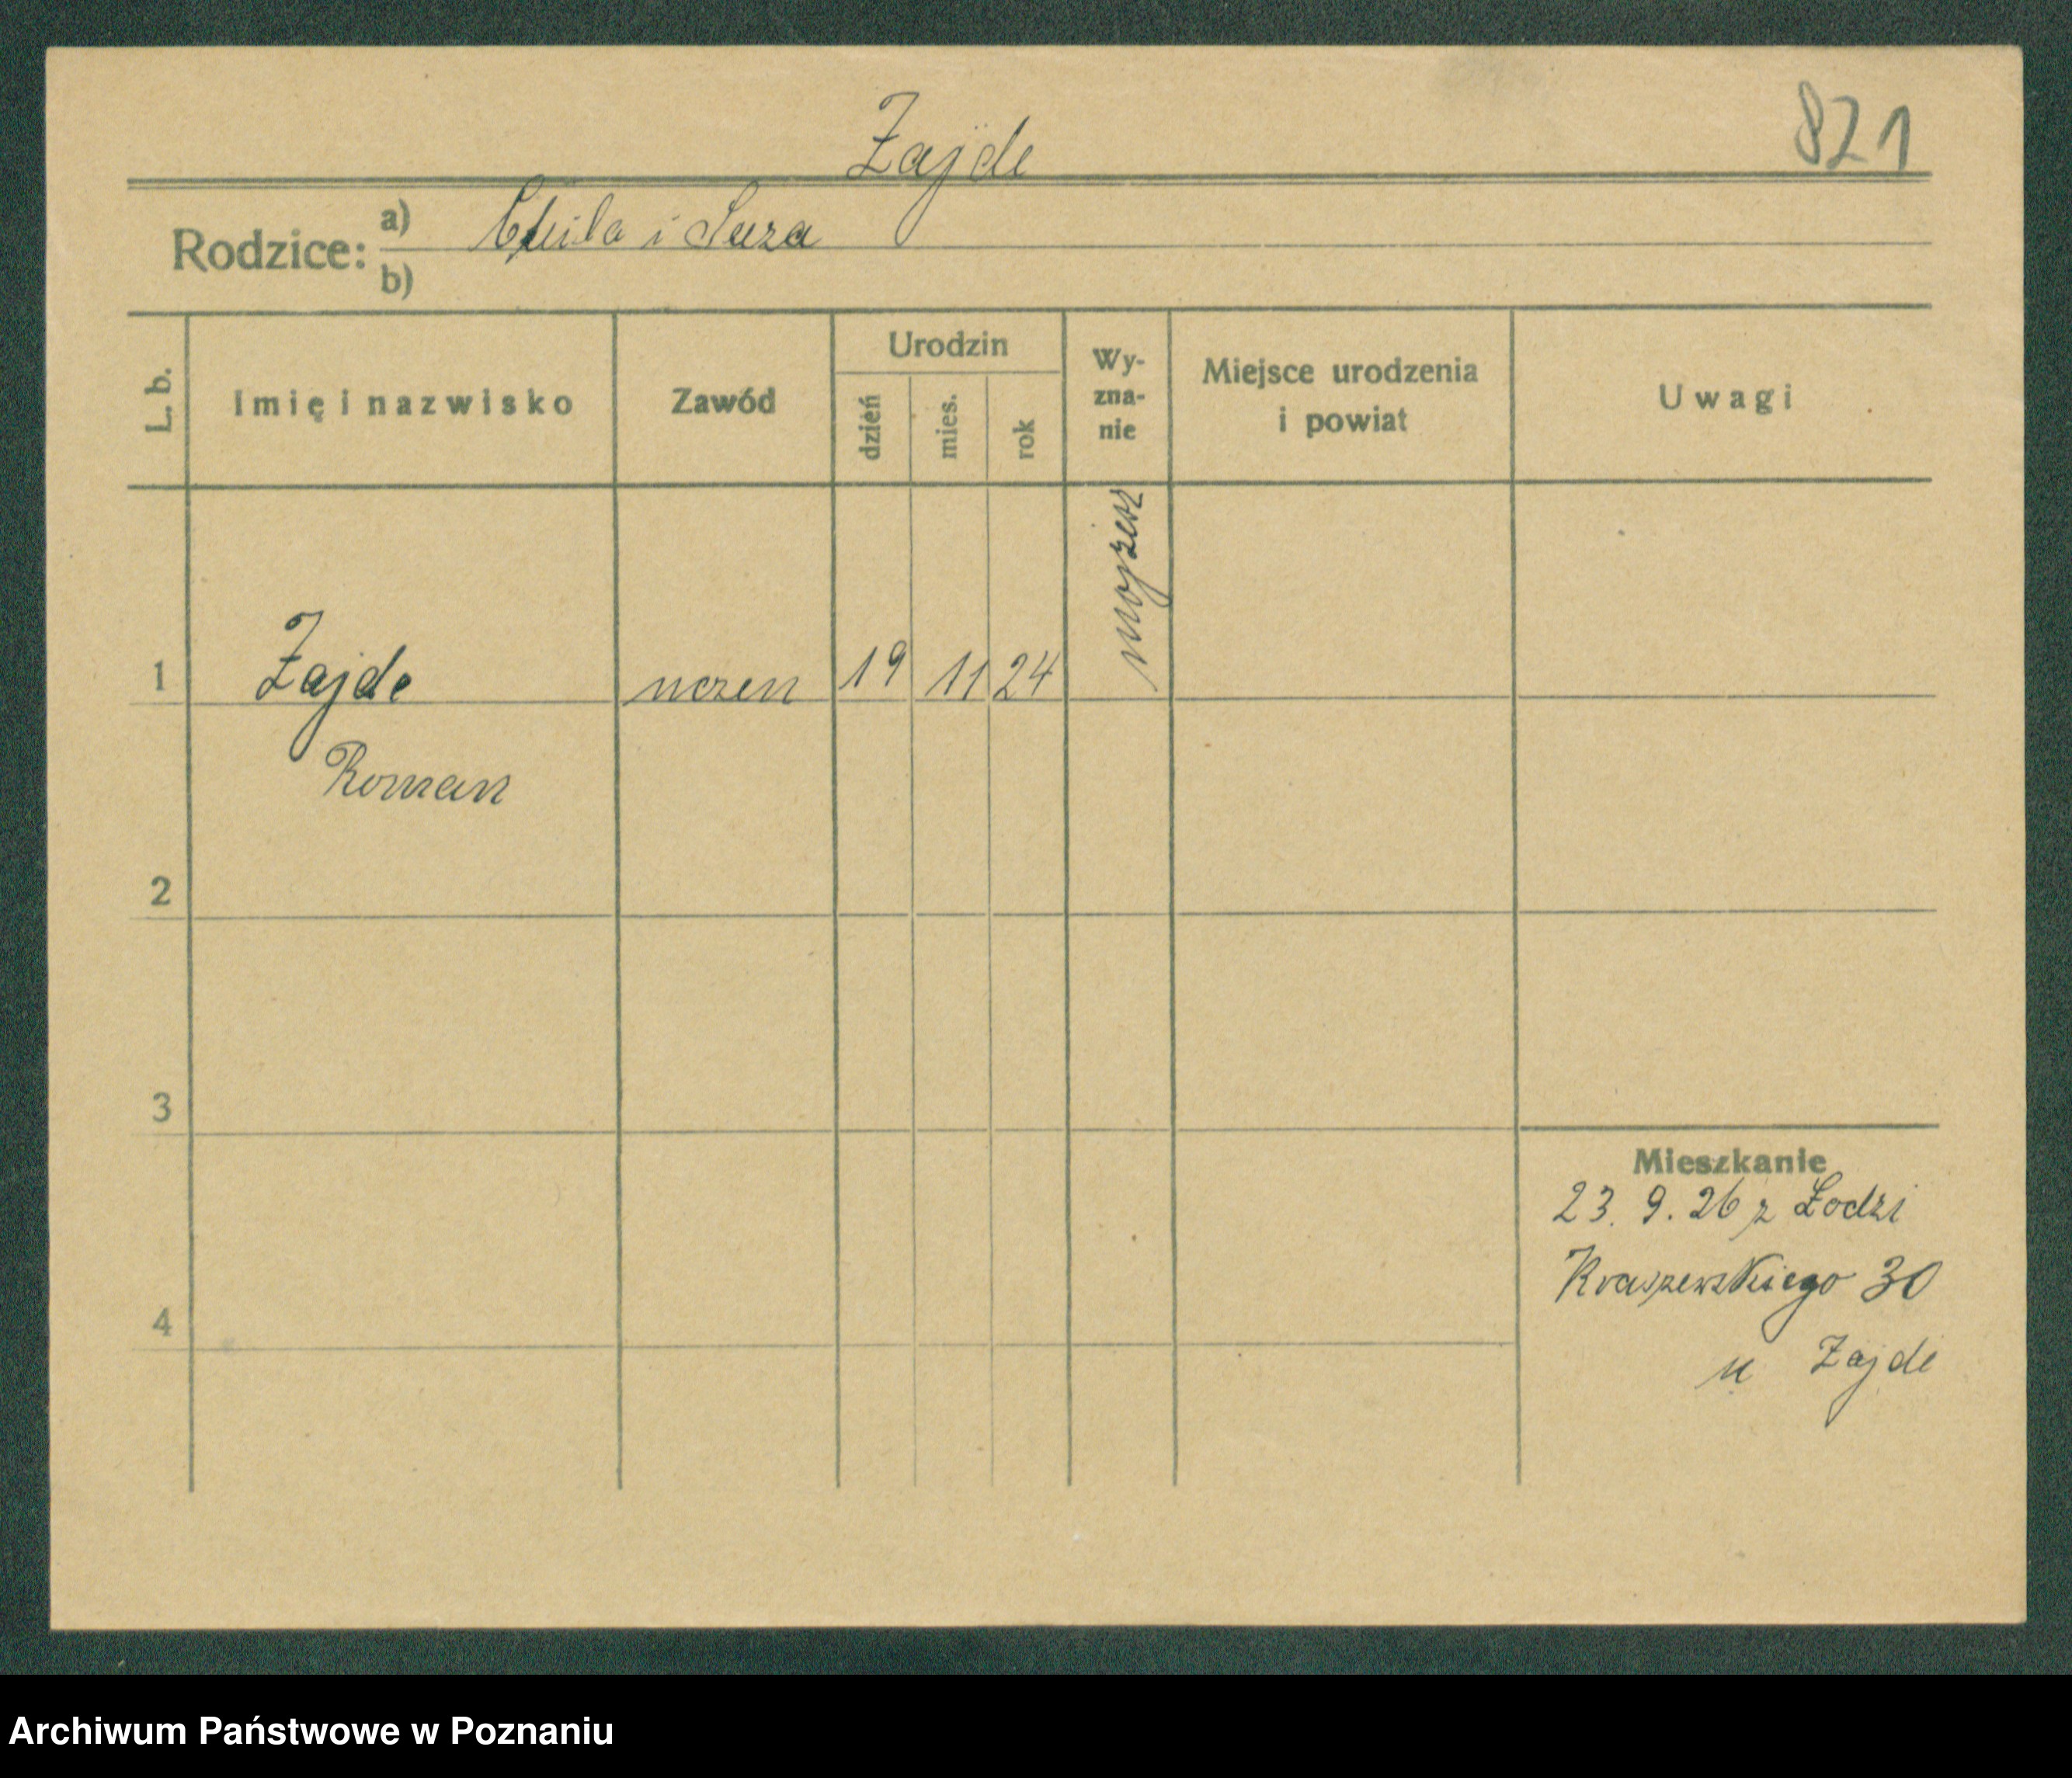 Zajde
821
Rodzice:
a) Chila i Sura
b)
L. b.
Imię i nazwisko
Zawód
Urodzin
dzień
mies.
rok
Wy-
zna-
nie
Miejsce urodzenia
i powiat
Uwagi
1 Zajde uczen 19 11 24 mojżesz
Roman
2
3
4
Mieszkanie
23. 9. 26 z Łodzi
Kraszewskiego 30
u Zajde
Archiwum Państwowe w Poznaniu